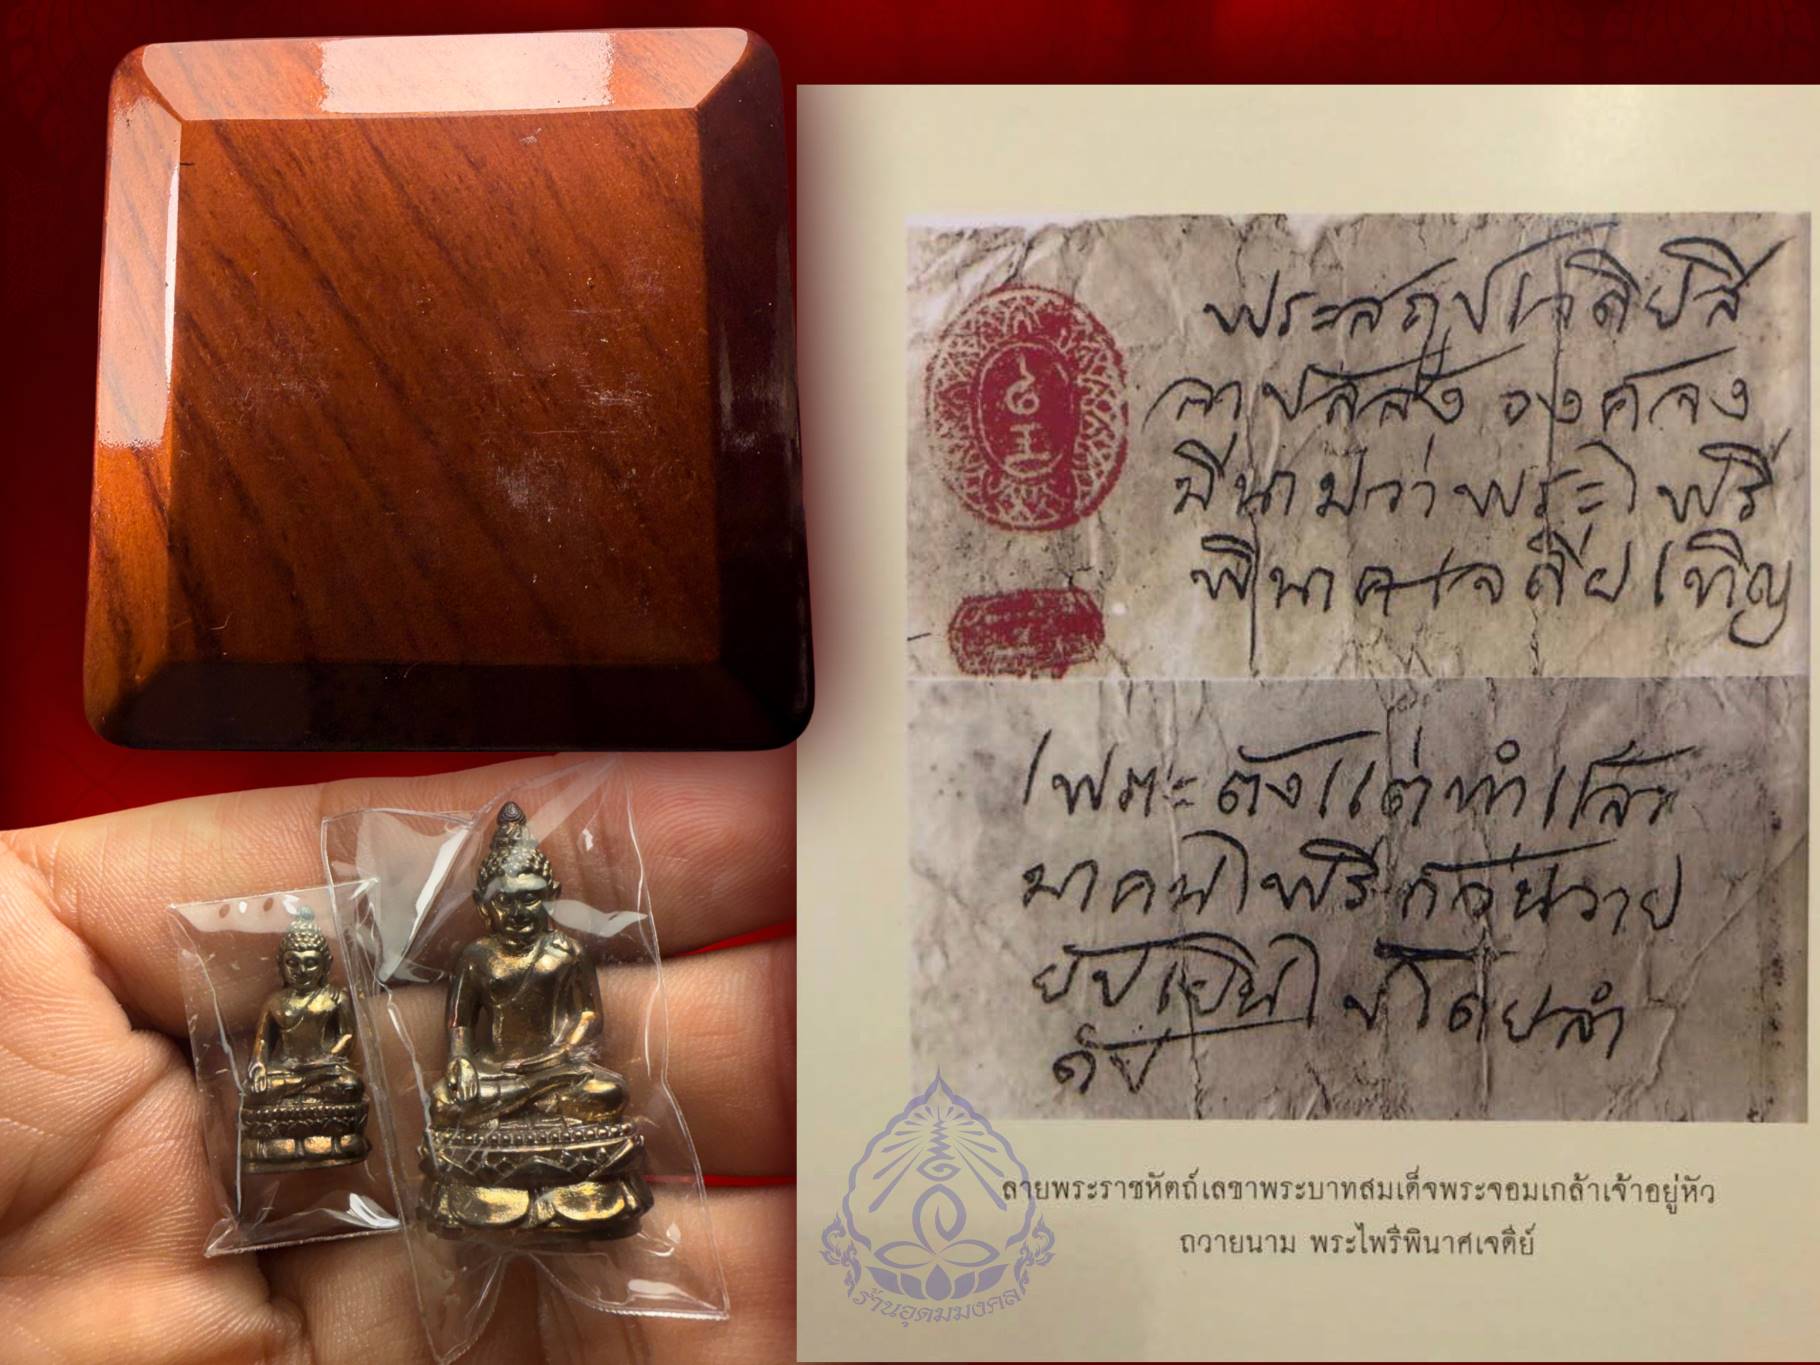 พระสถูปเจดียสี
ลาปลัลัง องค์จง
มีนามว่าพระไพรี
พินาศเจดีย เทิญ
เพราะตังแต่ทำแล้ว
มาคนไพรีก็วุ่นวาย
ยับเยินไปโดยลำ
ดับ
ลายพระราชหัตถ์เลขาพระบาทสมเด็จพระจอมเกล้าเจ้าอยู่หัว
ถวายนาม พระไพรีพินาศเจดีย์
ร้านอุดมมงคล